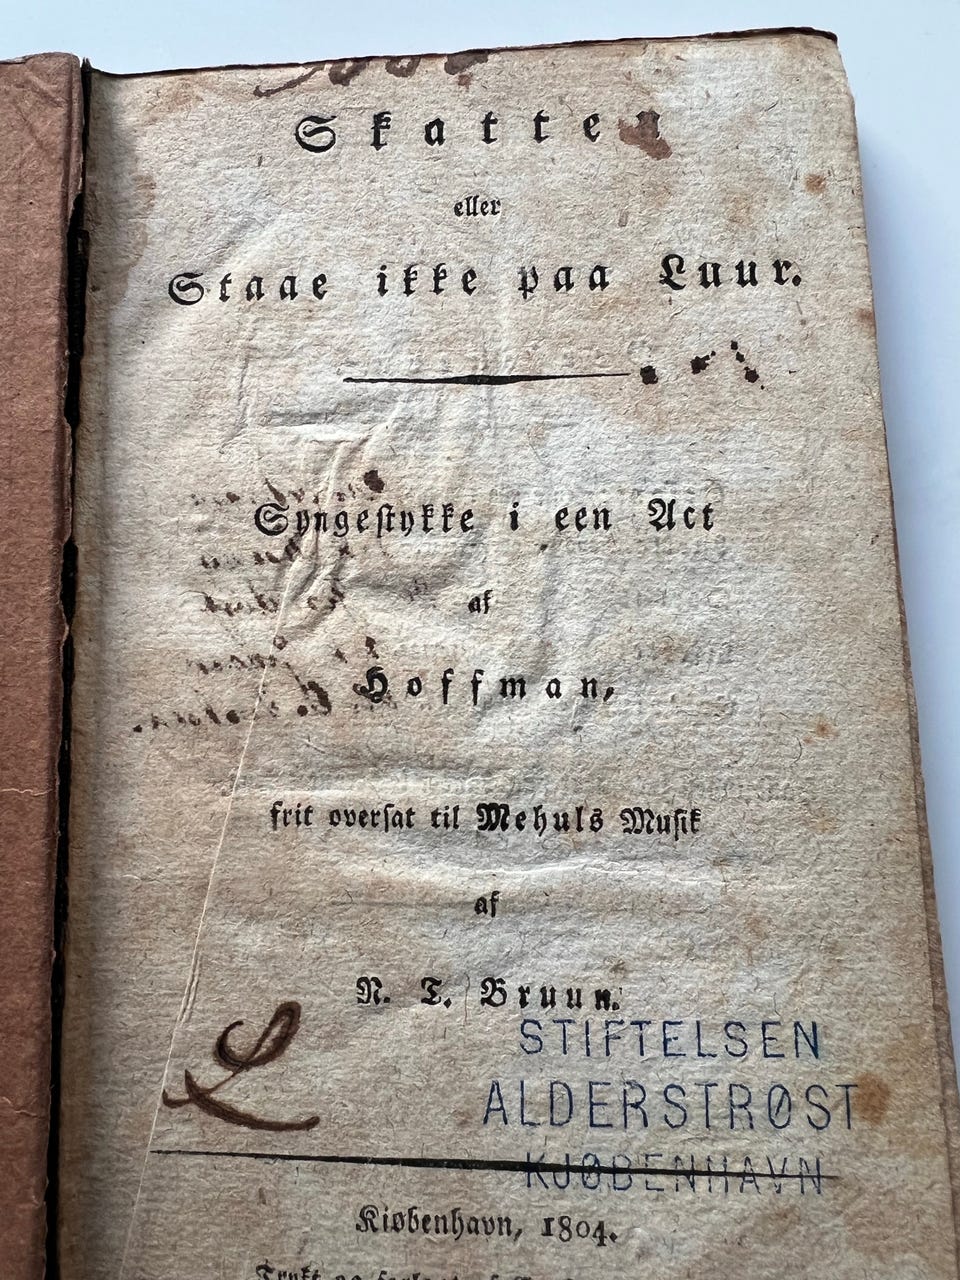 Skatten
eller
Staae ikke paa Luur.
Syngestykke i een Act
af
Hoffman,
frit oversat til Mehuls Musik
af
N. T. Bruun.
STIFTELSEN
ALDERSTRØST
KJØBENHAVN
L
Kiøbenhavn, 1804.
Trykt og forlagt af